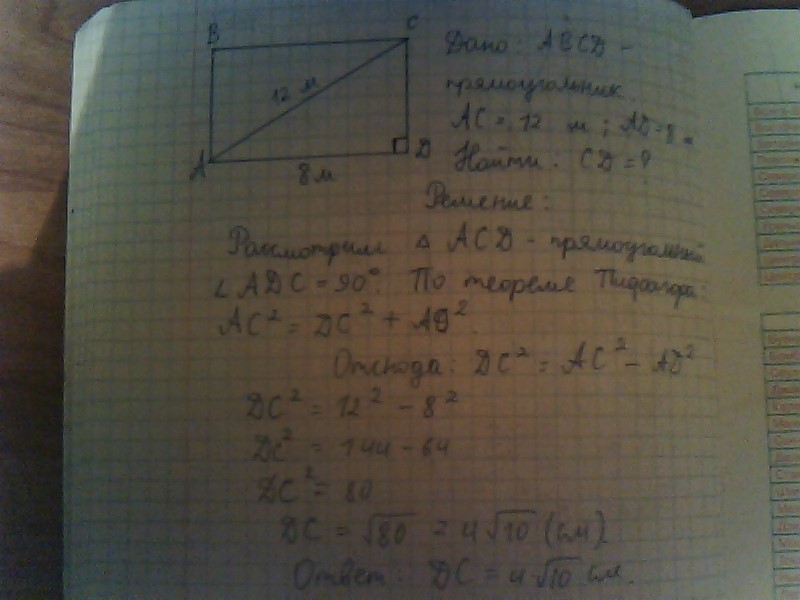 B C
12 м
A D
8 м
Дано: ABCD -
прямоугольник
AC = 12 м ; AD = 8 м
Найти: CD = ?
Решение:
Рассмотрим Δ ACD - прямоугольный
∠ ADC = 90°. По теореме Пифагора:
AC² = DC² + AD².
Отсюда: DC² = AC² - AD²
DC² = 12² - 8²
DC² = 144 - 64
DC² = 80
DC = √80 = 4√10 (см)
Ответ: DC = 4√10 см.